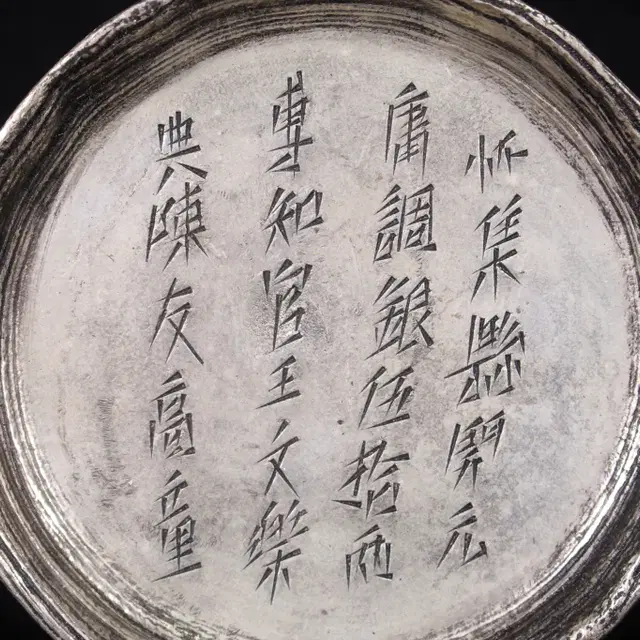 怀集縣開元
庸調銀伍拾兩
專知官王文樂
典陳友高童